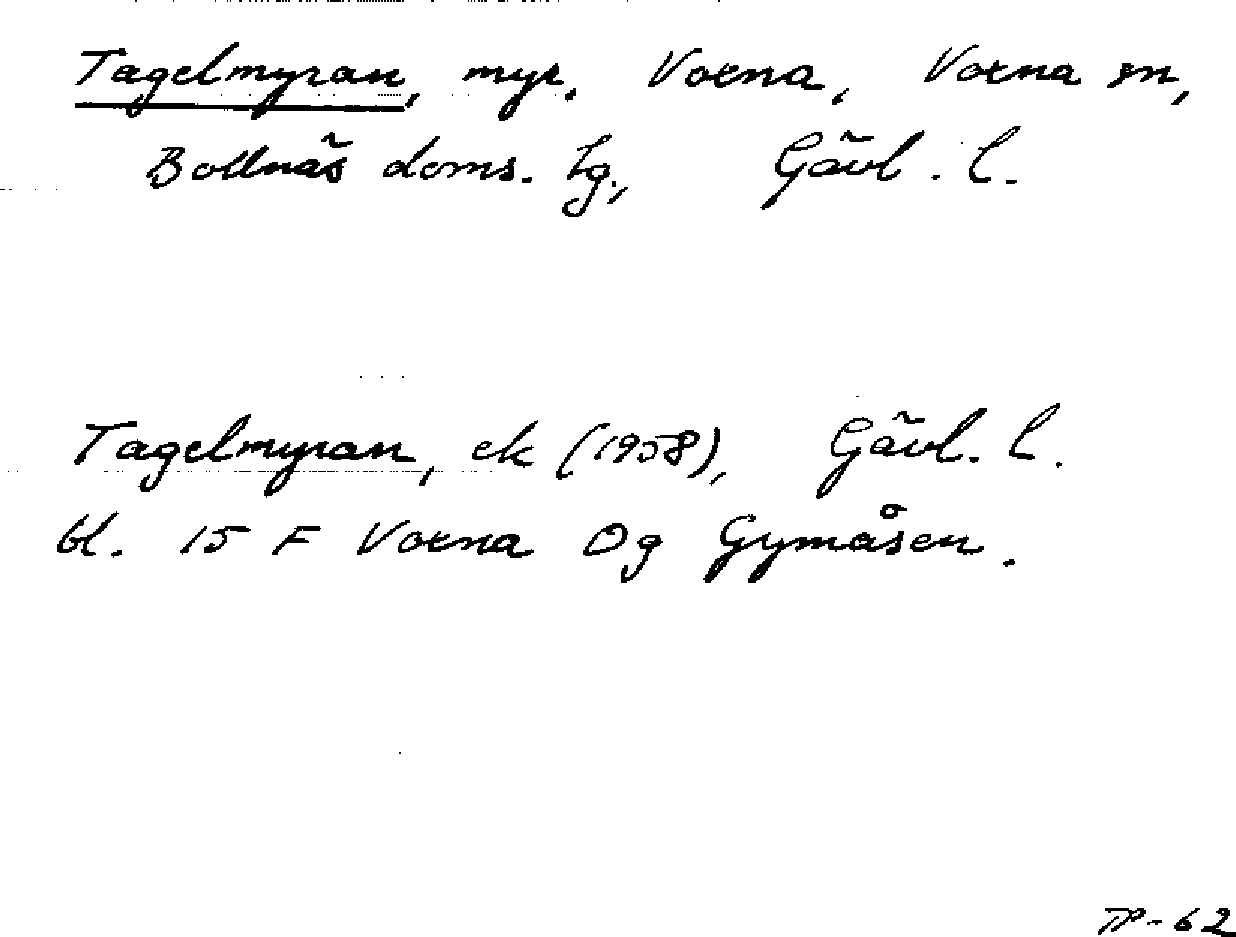 Tagelmyran, myr, Voxna, Voxna sn,
Bollnäs doms. tg., Gävl. l.
Tagelmyran, ek (1958), Gävl. l.
bl. 15 F Voxna 0g Gymåsen.
TP-62